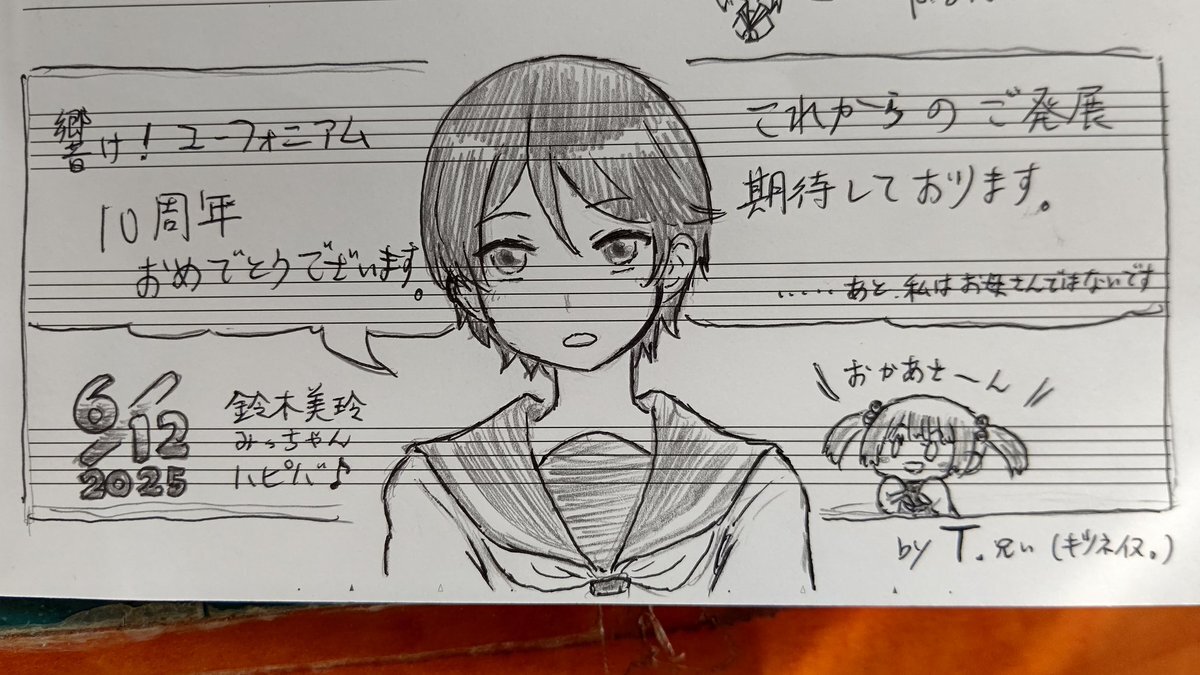 響け！ユーフォニアム
10周年
おめでとうございます。
これからのご発展
期待しております。
……あと、私はお母さんではないです
6/12
2025
鈴木美玲
みっちゃん
ハピバ♪
おかあさーん
by T.兄ぃ(キツネイヌ。)